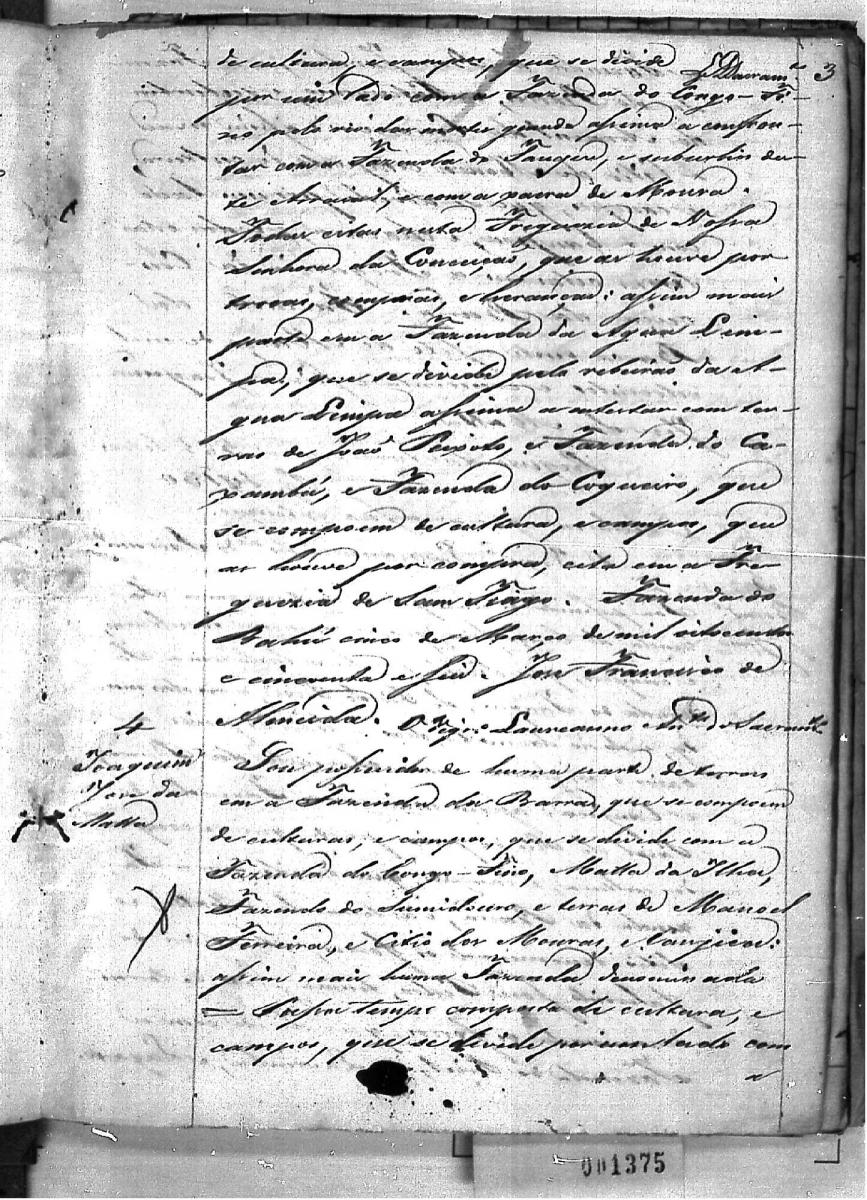 3
de cultura, e campos, que se divide
por um lado com a Fazenda do Congo-Fi-
no pelo rio das mortes grande assima a confron-
tar com a Fazenda do Tanque, e suburbio des-
te Arraial, e com a parra de Moura.
Todas citas nesta Freguezia de Nossa
Senhora da Conceição, que as houve por
trocas, compras, e heranças: assim mais
parte em a Fazenda da Agua Lim-
pa, que se divide pelo ribeirão da A-
gua Limpa assima a entestar com ter-
ras de João Peixoto, e Fazenda do Ca-
xambú, e Fazenda do Coqueiro, que
se compoem de cultura, e campos, que
as houve por compra, cita em a Fre-
guezia de Sam Tiago. Fazenda do
Bahú cinco de Março de mil oitocentos
e cincoenta e seis. Jose Francisco de
Almeida. O Vigr.o Laureanno Ant.o do Sacram.to
4
Joaquim
Jose da
Matta
Sou possuidor de huma parte de terras
em a Fazenda da Barra, que se compoem
de culturas, e campos, que se divide com a
Fazenda do Congo-Fino, Matta da Ilha,
Fazenda do Sumidouro, e terras de Manoel
Ferreira, e Citio dos Mouras, e
assim mais huma Fazenda denominada
= tempo composta de cultura, e
campos, que se divide por um lado com
a
001375